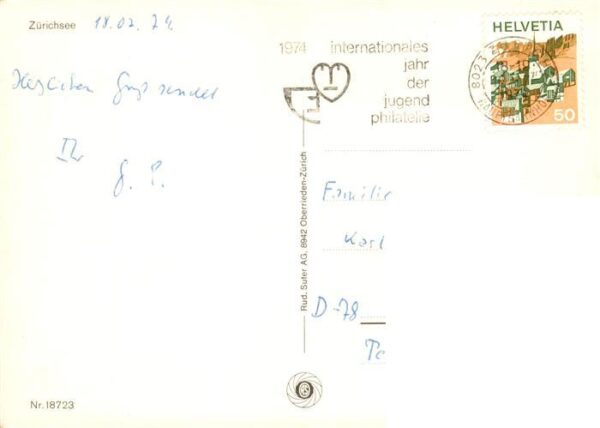 Zürichsee 18.02.74
Herzlichen Gruß sendet
Ihr
G. P.
Nr. 18723
Rud. Suter AG, 8942 Oberrieden-Zürich
1974 internationales
jahr
der
jugend
philatelie
HELVETIA
50
8023
Familie
Karl
D-78